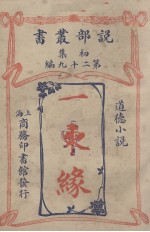 說部叢書
初集
第二十九編
道德小說
一柬緣
上海商務印書館發行